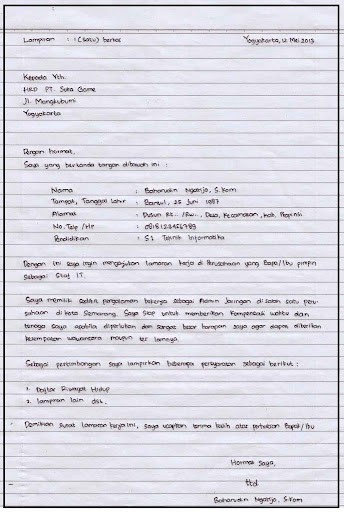 Lampiran : 1 (satu) berkas Yogyakarta, 12 Mei 2013
Kepada Yth.
HRD PT. Suka Game
Jl. Mangkubumi
Yogyakarta
Dengan hormat,
Saya yang bertanda tangan dibawah ini :
Nama : Baharudin Ngatijo, S.Kom
Tempat, Tanggal Lahir : Bantul, 25 Juni 1987
Alamat : Dusun Rt.. /Rw.., Desa, Kecamatan, Kab, Propinsi
No. Telp /Hp : 0818123456789
Pendidikan : S1 Teknik Informatika
Dengan ini saya ingin mengajukan lamaran kerja di Perusahaan yang Bapa/Ibu pimpin
sebagai Staf IT.
Saya memiliki sedikit pengalaman bekerja sebagai Admin Jaringan di salah satu peru-
sahaan di kota Semarang. Saya siap untuk memberikan kompensasi waktu dan
tenaga saya apabila diperlukan dan sangat besar harapan saya agar dapat diberikan
kesempatan wawancara maupun tes lainnya.
Sebagai pertimbangan saya lampirkan beberapa persyaratan sebagai berikut :
1. Daftar Riwayat Hidup
2. lampiran lain dst.
Demikian surat lamaran kerja ini, saya ucapkan terima kasih atas perhatian Bapak/Ibu
Hormat Saya,
ttd
Baharudin Ngatijo, S.Kom